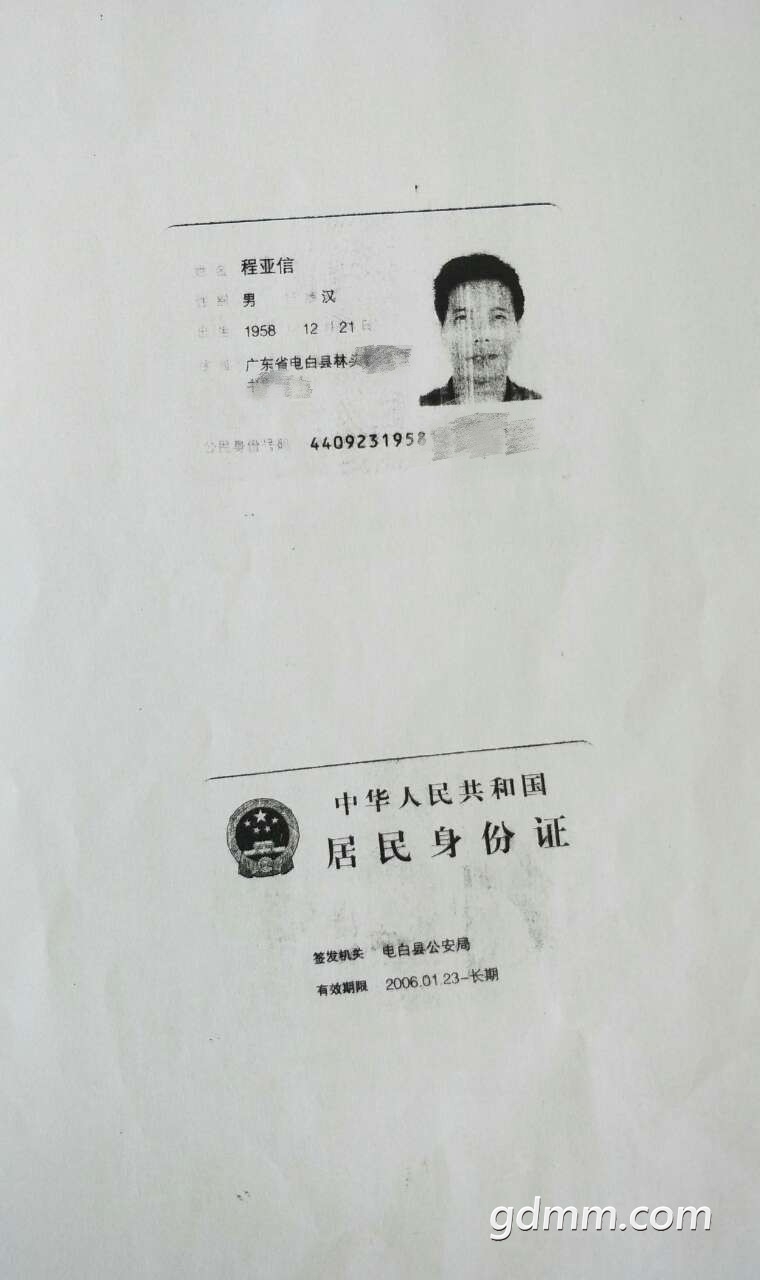 姓名 程亚信
性别 男 民族 汉
出生 1958 12 21 日
住址 广东省电白县林头
公民身份号码 4409231958
中华人民共和国
居民身份证
签发机关 电白县公安局
有效期限 2006.01.23-长期
gdmm.com